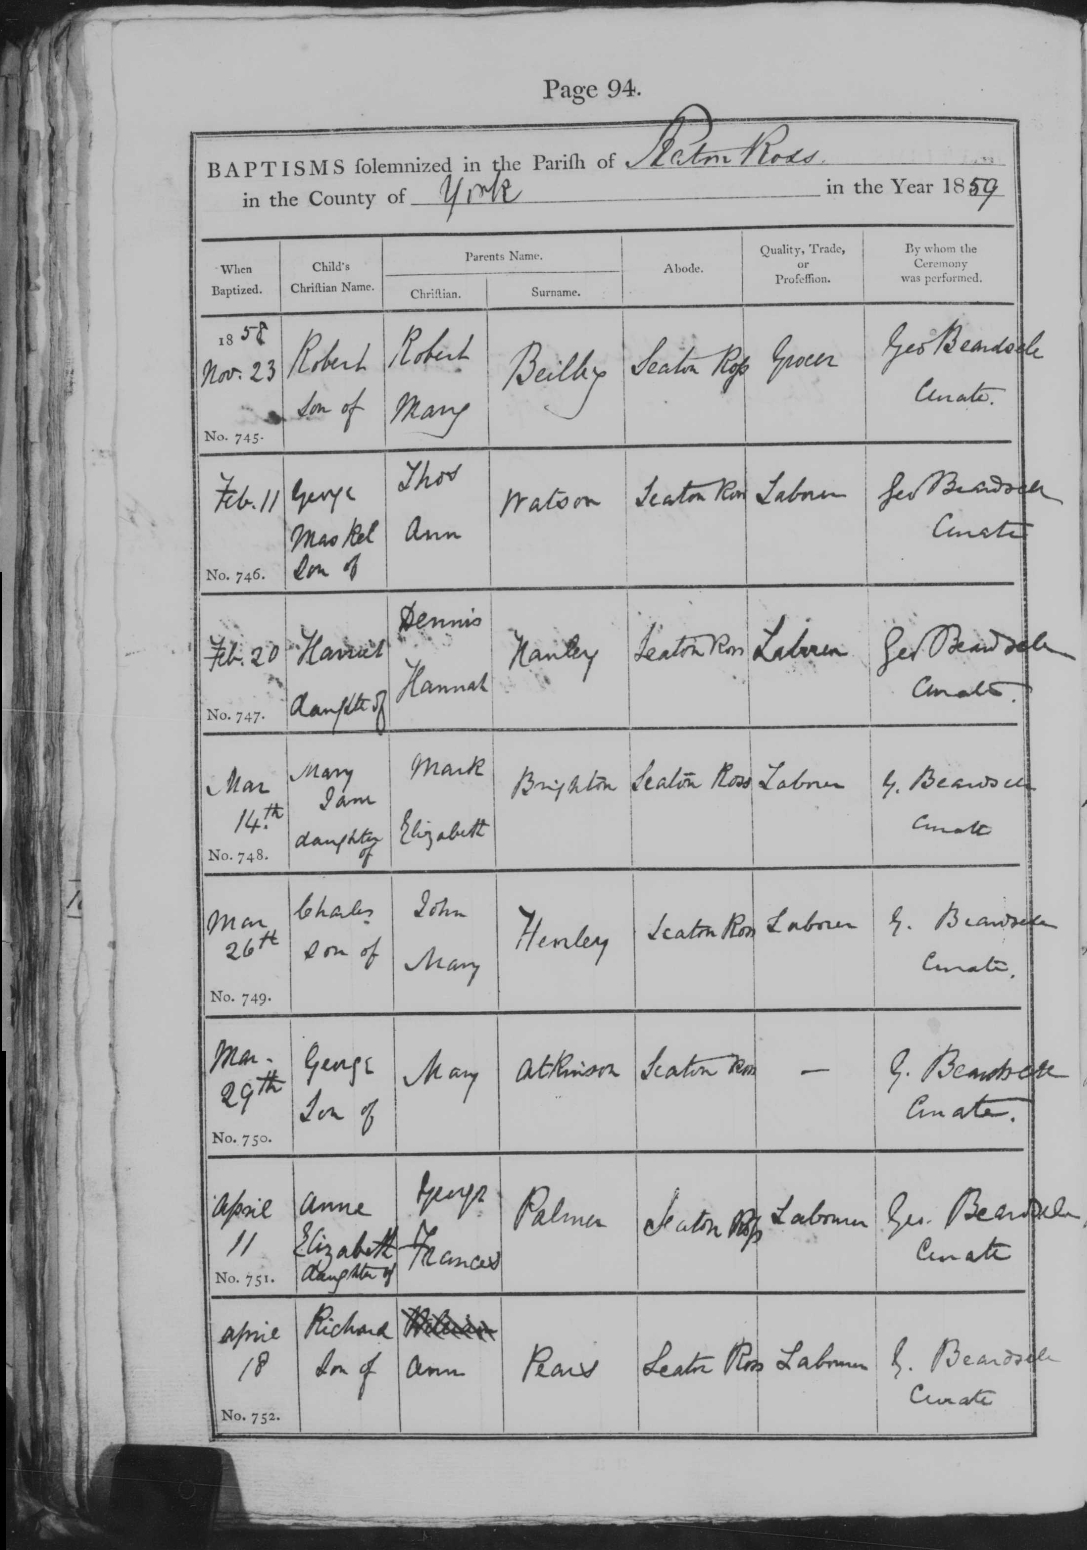 Page 94.
BAPTISMS solemnized in the Parish of Seaton Ross.
in the County of York in the Year 1859
When Baptized. Child's Christian Name. Parents Name. Christian. Surname. Abode. Quality, Trade, or Profession. By whom the Ceremony was performed.
1858
Nov. 23 Robert Robert Beilby Seaton Ross Grocer Geo Beardsele
son of Mary Curate.
No. 745.
Feb. 11 George Thos Watson Seaton Ross Laborer Geo Beardsele
Maskel Ann Curate
No. 746. Son of
Feb. 20 Harriet Dennis Hanley Seaton Ross Laborer Geo Beardsele
daughter of Hannah Curate.
No. 747.
Mar Mary Mark Brighton Seaton Ross Laborer G. Beardsele
14th Jane Elizabeth Curate
No. 748. daughter of
Mar Charles John Henley Seaton Ross Laborer G. Beardsele
26th son of Mary Curate.
No. 749.
Mar. George Mary Atkinson Seaton Ross — G. Beardsele
29th Son of Curate.
No. 750.
April Anne George Palmer Seaton Ross Labourer Geo. Beardsele
11 Elizabeth Frances Curate
No. 751. daughter of
April Richard Pears Seaton Ross Labourer G. Beardsele
18 Son of Ann Curate
No. 752.